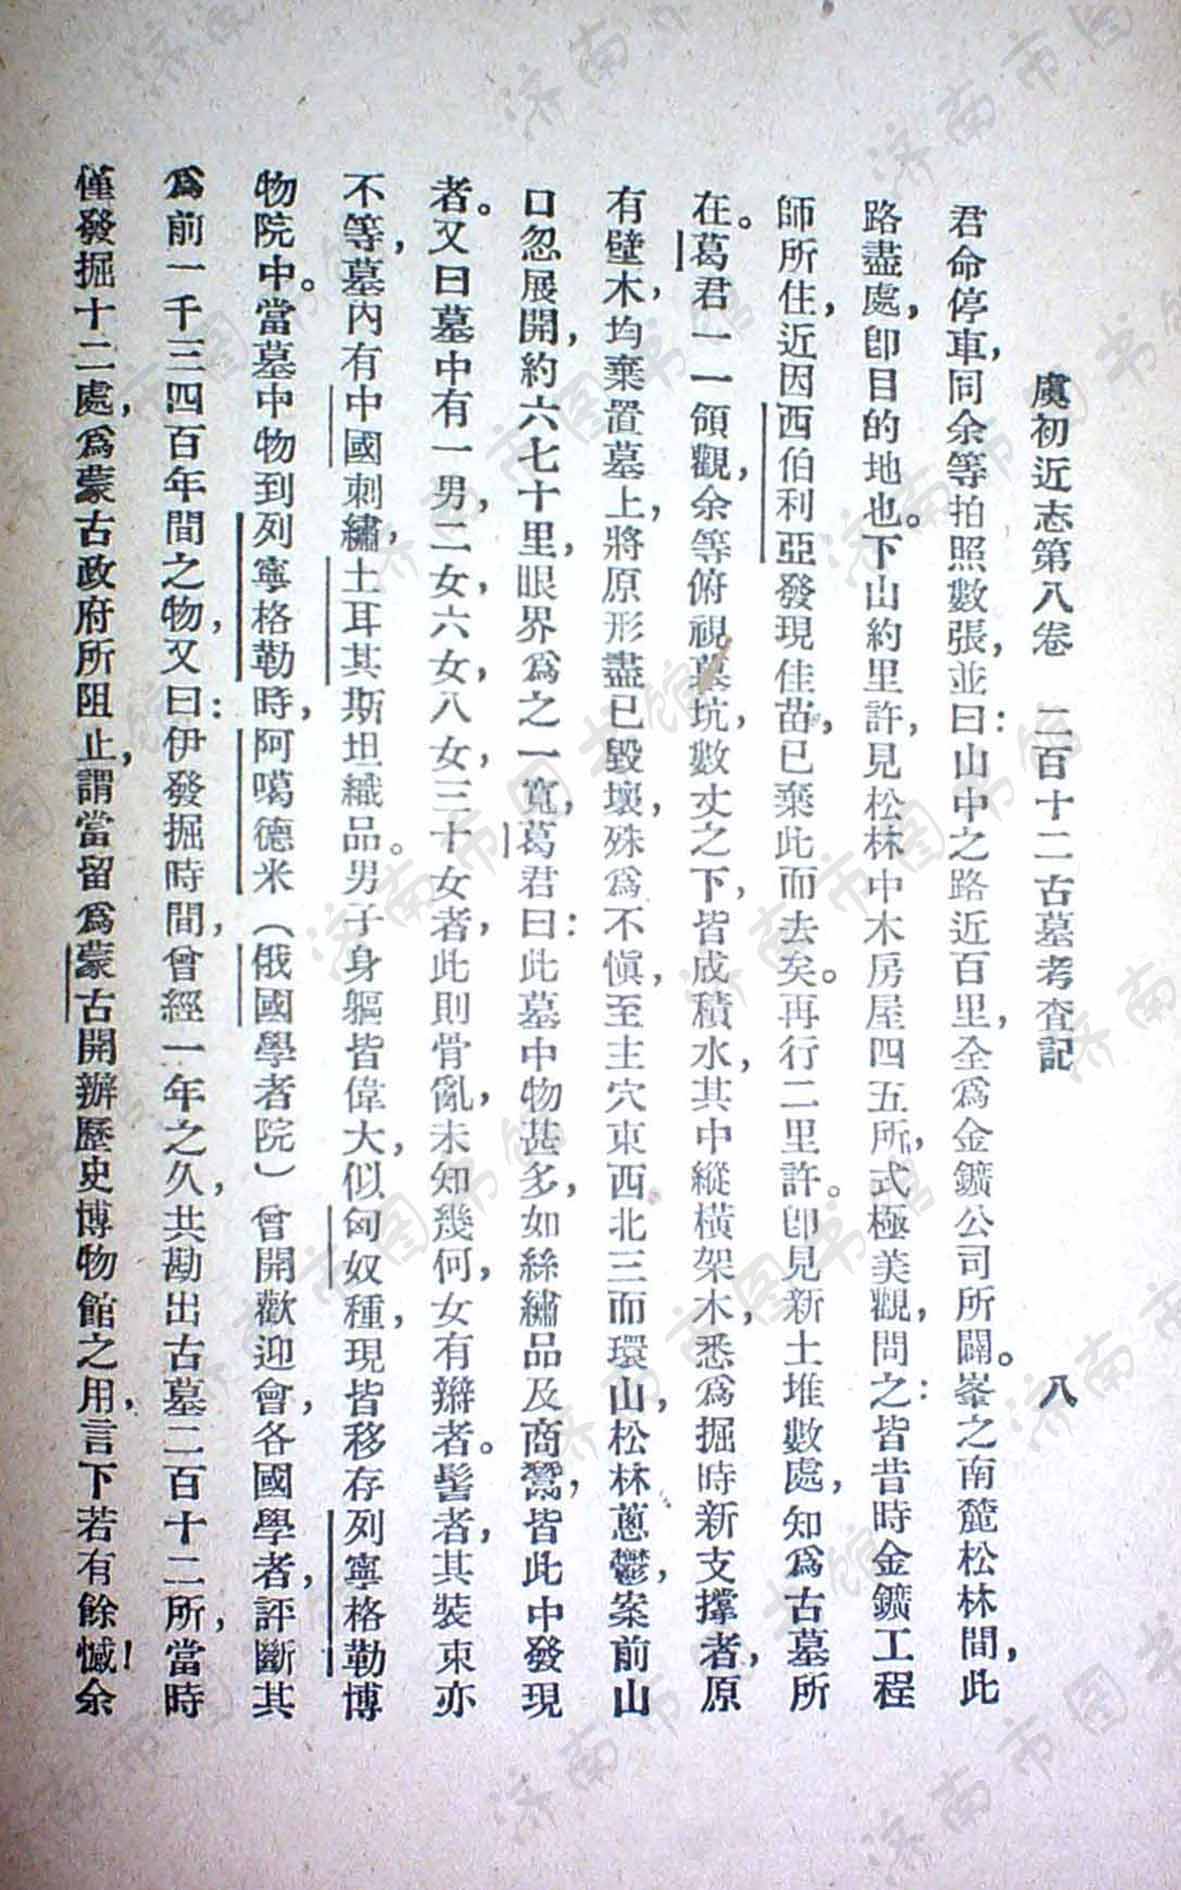 虞初近志第八卷　二百十二古墓考查記　八
君命停車，同余等拍照數張，並曰：山中之路近百里，全爲金鑛公司所闢。峯之南麓松林間，此
路盡處，卽目的地也。下山約里許，見松林中木房屋四五所，式極美觀，問之：皆昔時金鑛工程
師所住，近因西伯利亞發現佳苗，已棄此而去矣。再行二里許。卽見新土堆數處，知爲古墓所
在。葛君一一領觀，余等俯視墓坑，數丈之下，皆成積水，其中縱橫架木，悉爲掘時新支撑者，原
有壁木，均棄置墓上，將原形盡已毀壞，殊爲不愼，至主穴東西北三而環山，松林蔥鬱，案前山
口忽展開，約六七十里，眼界爲之一寬，葛君曰：此墓中物甚多，如絲繡品及商鬻，皆此中發現
者。又曰墓中有一男，二女，六女，八女，三十女者，此則骨亂，未知幾何，女有辮者。髻者，其裝束亦
不等，墓內有中國刺繡，土耳其斯坦織品。男子身軀皆偉大，似匈奴種，現皆移存列寧格勒博
物院中。當墓中物到列寧格勒時，阿噶德米（俄國學者院）曾開歡迎會，各國學者，評斷其
爲前一千三四百年間之物，又曰：伊發掘時間，曾經一年之久，共勘出古墓二百十二所，當時
僅發掘十二處，爲蒙古政府所阻止，謂當留爲蒙古開辦歷史博物館之用，言下若有餘憾！余
济南市图书馆